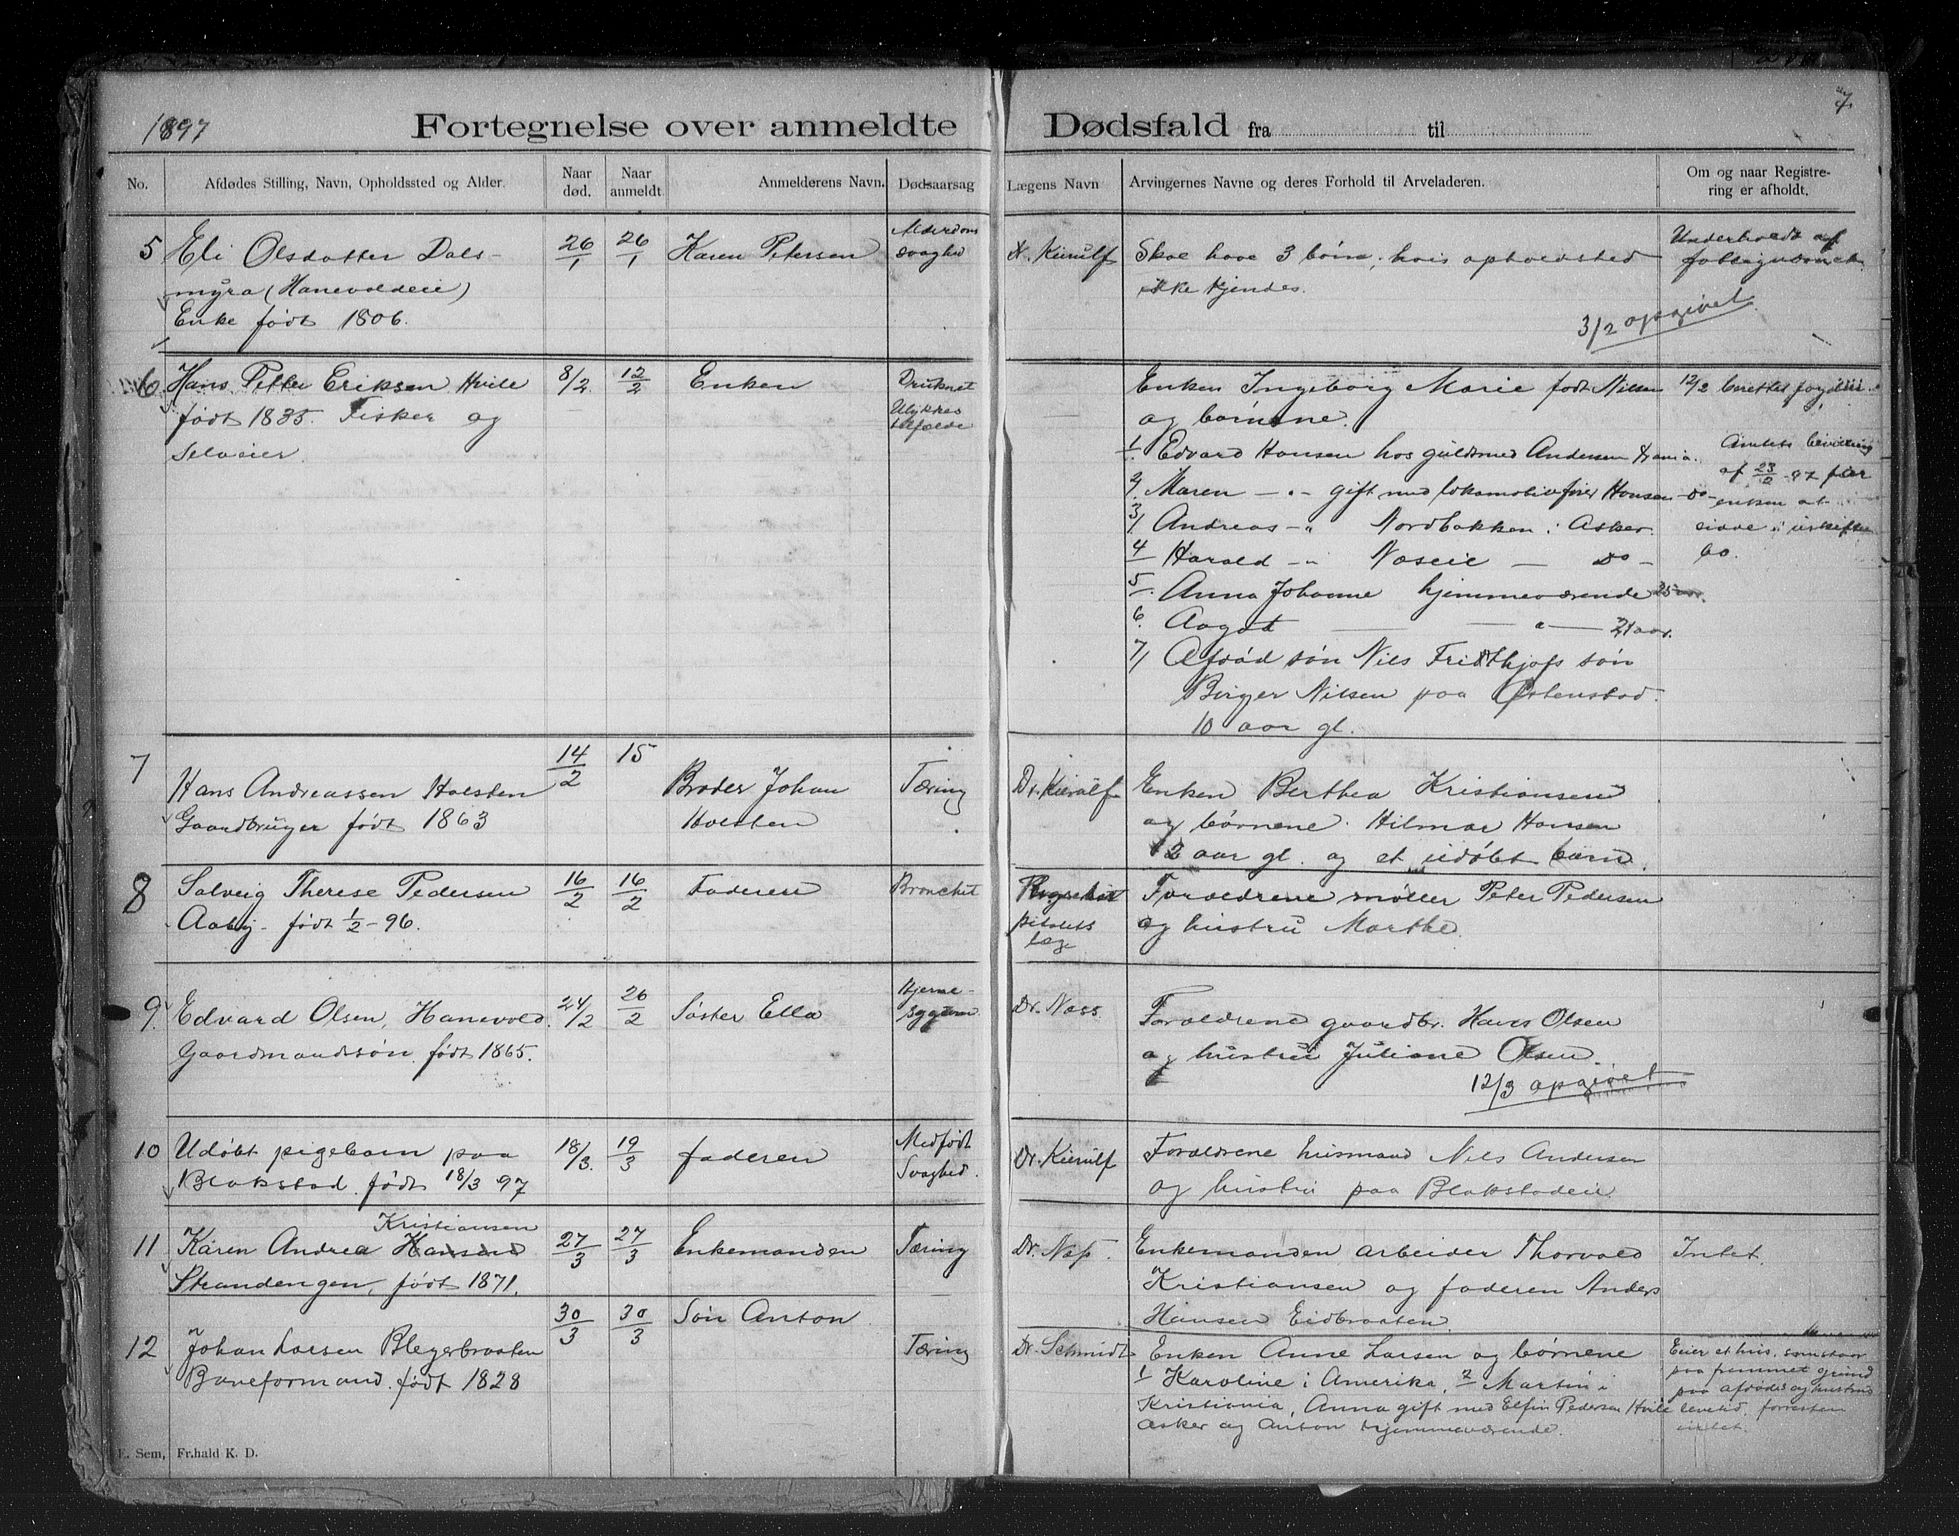 1897
Fortegnelse over anmeldte Dødsfald fra til
7
No.
Afdødes Stilling, Navn, Opholdssted og Alder.
Naar død.
Naar anmeldt.
Anmelderens Navn.
Dødsaarsag
Lægens Navn
Arvingernes Navne og deres Forhold til Arveladeren.
Om og naar Registre-
ring er afholdt.
5 Eli Olsdatter Dals-
myra (Hanevoldeie)
Enke født 1806.
26/1
26/1
Karen Petersen
Alderdoms
svaghed
Dr. Kierulf
Skal have 3 børn, hvis opholdssted
ikke kjendes.
Underholdt af
fattigvæsenet.
3/2 opgivet
6 Hans Petter Eriksen Hvile
født 1835. Fisker og
selveier.
8/2
12/2
Enken
Druknet
Ulykkes
tilfælde
Enken Ingeborg Marie født Nilsen
og børnene.
1. Edvard Hansen hos guldsmed Andersen Krania.
2. Maren -"- gift med lokomotivfører Hansen -Do-
3/ Andreas -"- Nordbakken i Asker.
4 Harald -"- Næseie - Do -
5. Anna Johanne hjemmeværende 25 aar.
6. Aagot - " - 21 aar.
7/ Afdød søn Nils Fridthjofs søn
Birger Nilsen paa Østenstad.
10 aar gl.
12/2 berettet
Amtets bevilling
af 23/2 - 97 for
enken at
sidde i uskiftet
bo.
7
Hans Andreassen Holsten
Gaardbruger født 1863
14/2
15
Broder Johan
Holsten
Tæring
Dr. Kierulf
Enken Berthea Kristiansen
og børnene. Hilmar Hansen
2 aar gl. og et udøbt barn.
8 Solveig Therese Pedersen
Aaby. født 1/2 - 96.
16/2
16/2
Faderen
Bronchit
Rigshos
pitalets
læge
Forældrene møller Peter Pedersen
og hustru Marthe.
9. Edvard Olsen, Hanevold.
Gaardmandssøn, født 1865.
24/2
26/2
Søster Ella
Hjerne-
sygdom.
Dr. Næss
Forældrene gaardbr. Hans Olsen
og hustru Juliane Olsen.
12/3 opgivet
10 Udøbt pigebarn paa
Blakstad. født 18/3 97
18/3.
19/3
faderen
Medfødt
Svaghed.
Dr. Kierulf
Forældrene husmand Nils Andersen
og hustru paa Blakstadeie.
Kristiansen
11 Karen Andrea Hansen
Strandengen, født 1871.
27/3
27/3
Enkemanden
Tæring
Dr. Næss.
Enkemanden arbeider Thorvald
Kristiansen og faderen Anders
Hansen Eidbraaten.
Intet.
12 Johan Larsen Blegerbraaten
Baneformand. født 1828
30/3
30/3
Søn Anton
Tæring
Dr. Schmidt
Enken Anne Larsen og børnene
1 Karoline i Amerika, 2 Martin i
Kristiania, Anna gift med Elfin Pedersen Hvile
Asker og Anton hjemmeværende.
Eier et hus, som staar
paa fremmet grund
paa afdødes og hustrus
levetid, forresten
intet.
E. Sem, Fr.hald K. D.